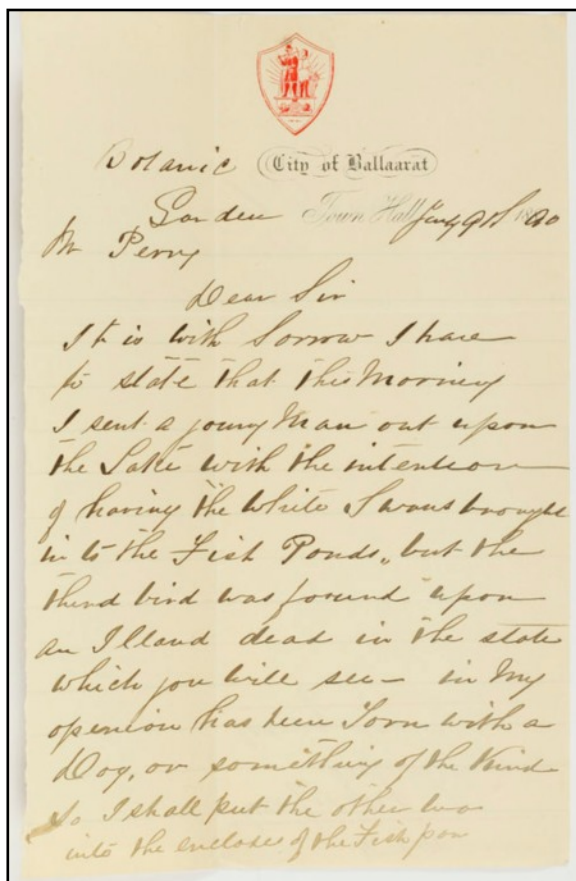 Botanic City of Ballaarat
Garden Town Hall 9th 1890
Mr Perry
Dear Sir
It is with Sorrow I have
to state that this Morning
I sent a young Man out upon
the Lake with the intention
of having the White Swans brought
in to the Fish Ponds, but the
third bird was found upon
an Illand dead in the state
which you will see - in My
openion has been Torn with a
Dog, or something of the Kind
So I shall put the other two
into the of the Fish pon